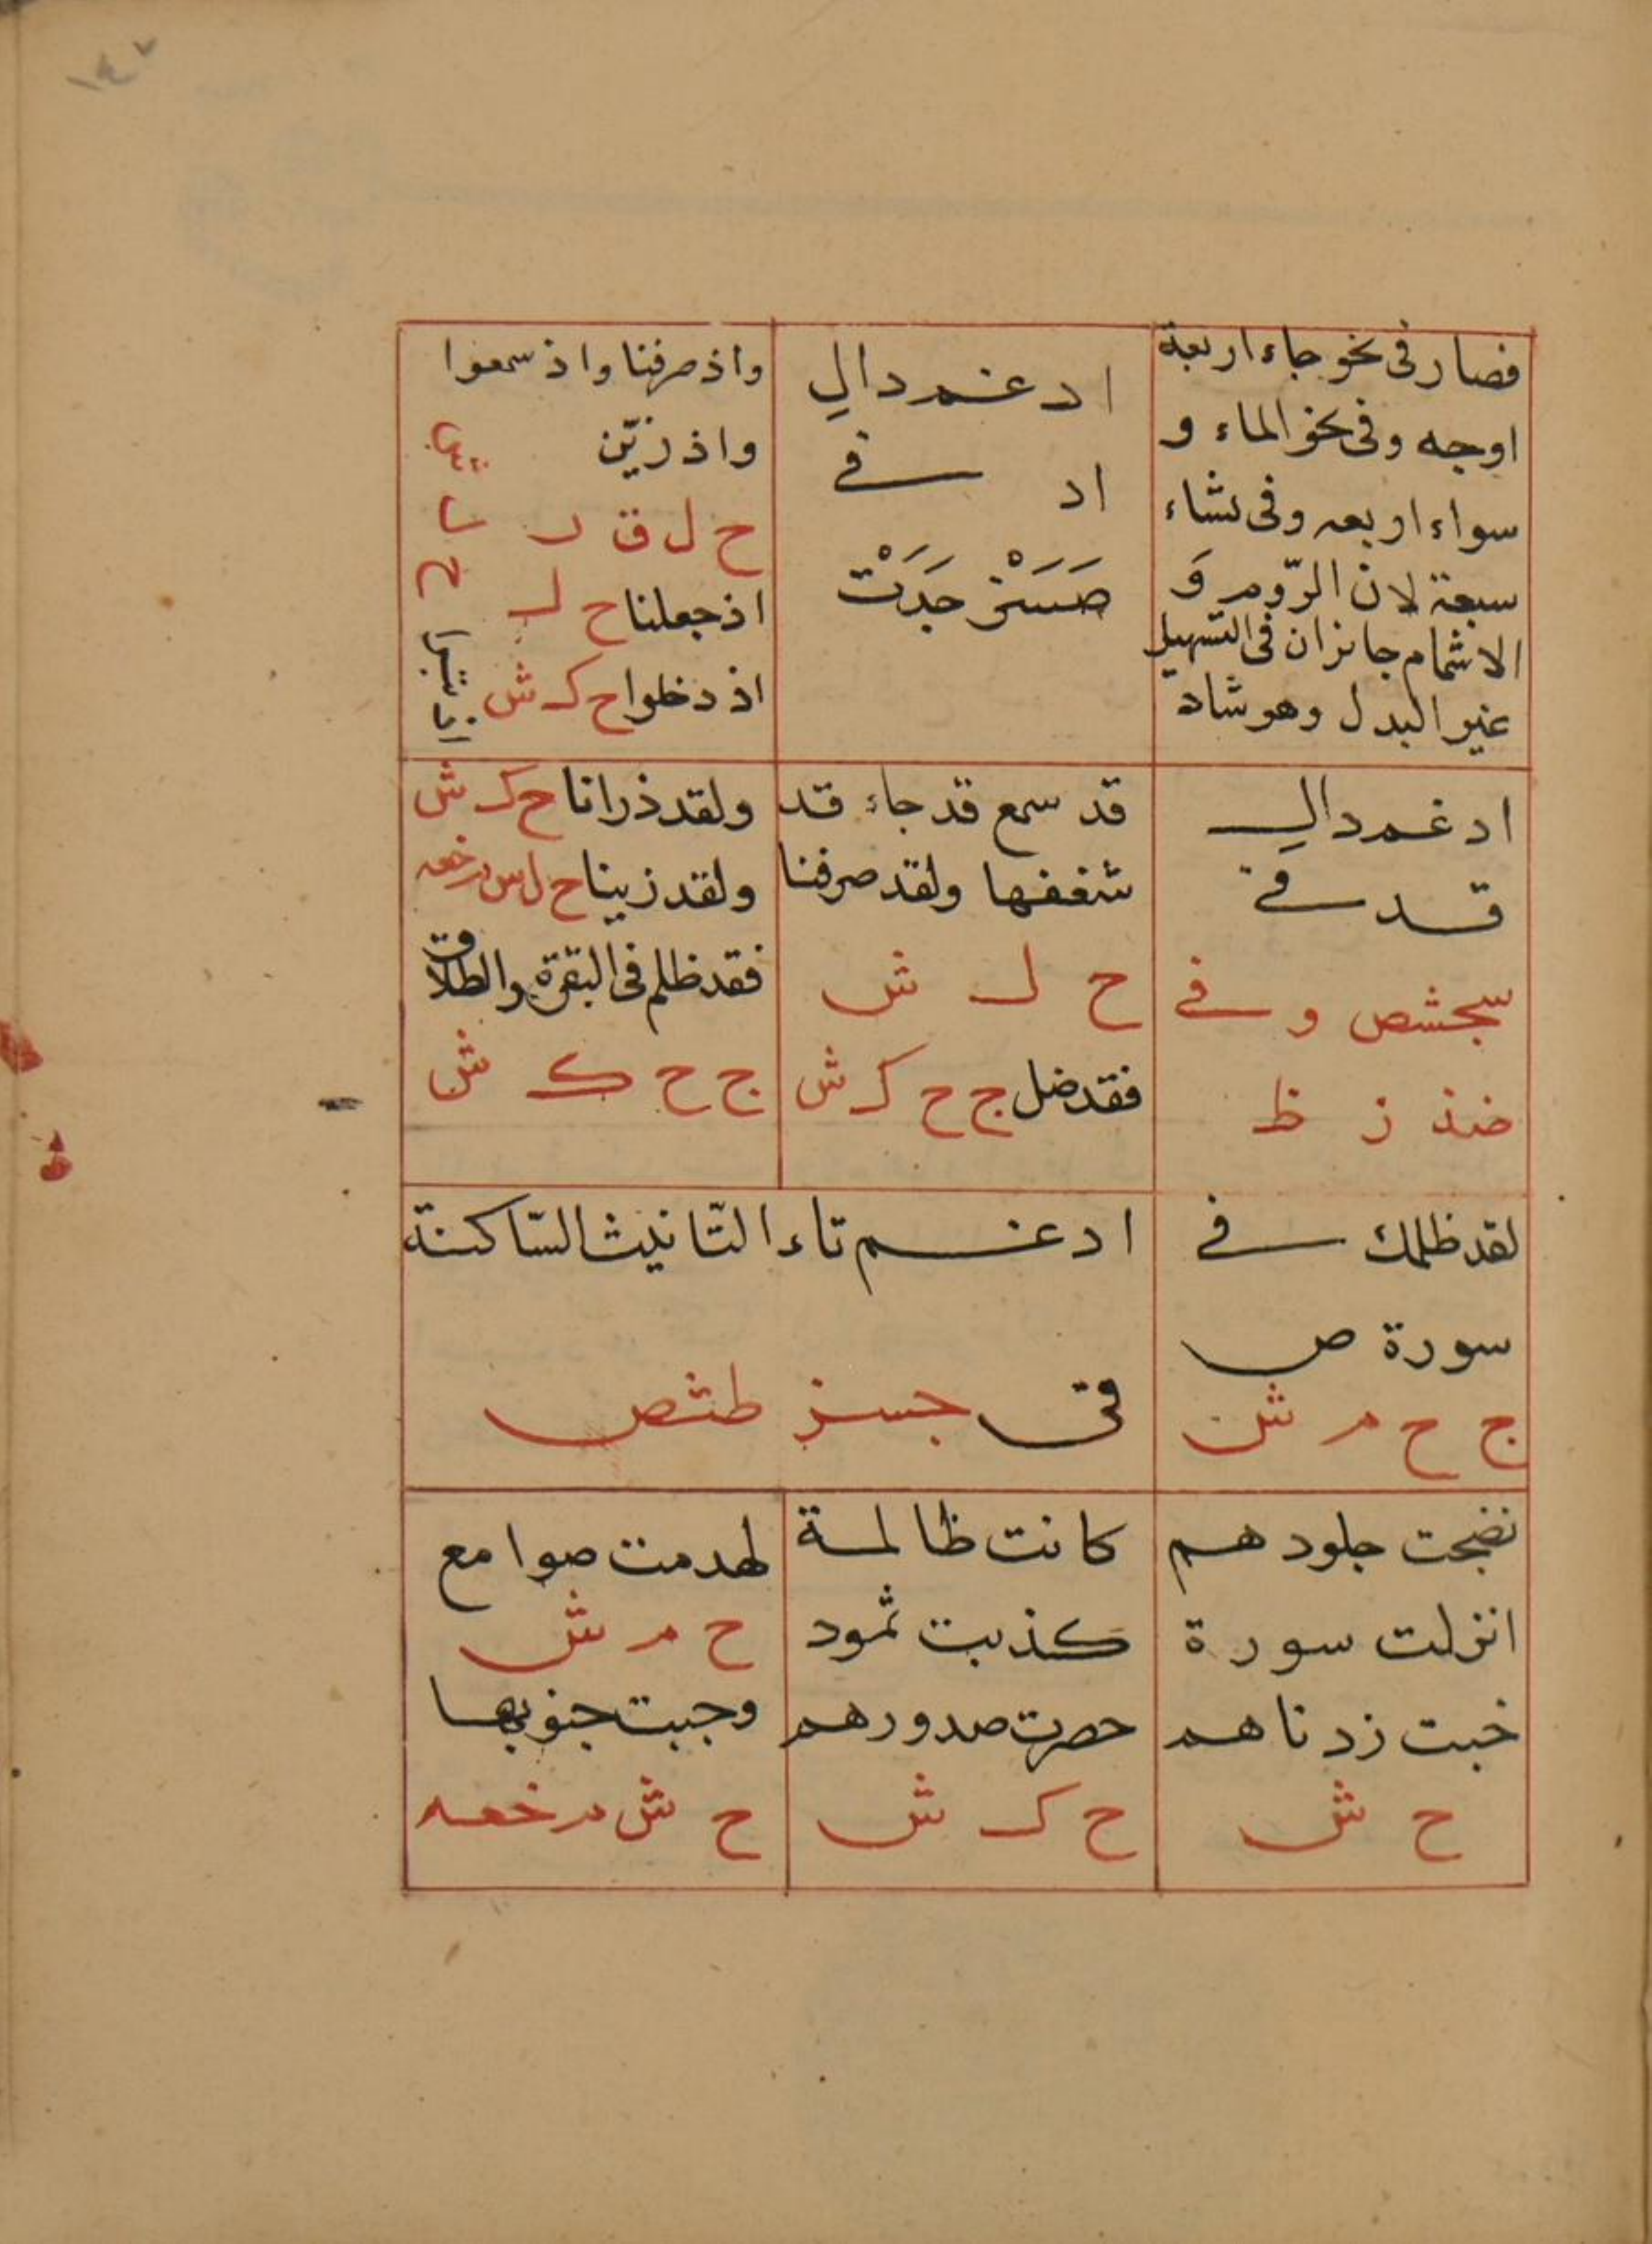 ١٤٧
فصار فى نحو جاء اربعة
اوجه وفى نحو الماء و
سواء اربعه وفى نشاء
سبعة لان الرّوم وَ
الاشمام جائزان فى التسهيل
غير البدل وهو شاد
ادغم دال
اد فى
صَسَزْ جَدَتْ
واذ صرفنا واذ سمعوا
واذ زيّن
ح ل ق ر
اذ جعلنا ح ل
اذ دخلوا ح ك ش
ادغم دال
قد فى
سجشص و فى
ضذ ز ظ
قد سمع قد جاء قد
شغفها ولقد صرفنا
ح ل ش
فقد ضل ج ح ك ش
ولقد ذرانا ح ك ش
ولقد زينا ح ل
فقد ظلم فى البقرة والطلاق
ج ح ك ش
لقد ظلمك فى
سورة ص
ج ح م ش
ادغم تاء التانيث السّاكنة
فى جسز طثص
نضجت جلودهم
انزلت سورة
خبت زدناهم
ح ش
كانت ظالمة
كذبت ثمود
حصرت صدورهم
ح ك ش
لهدمت صوامع
ح م ش
وجبت جنوبها
ح ش م خعه